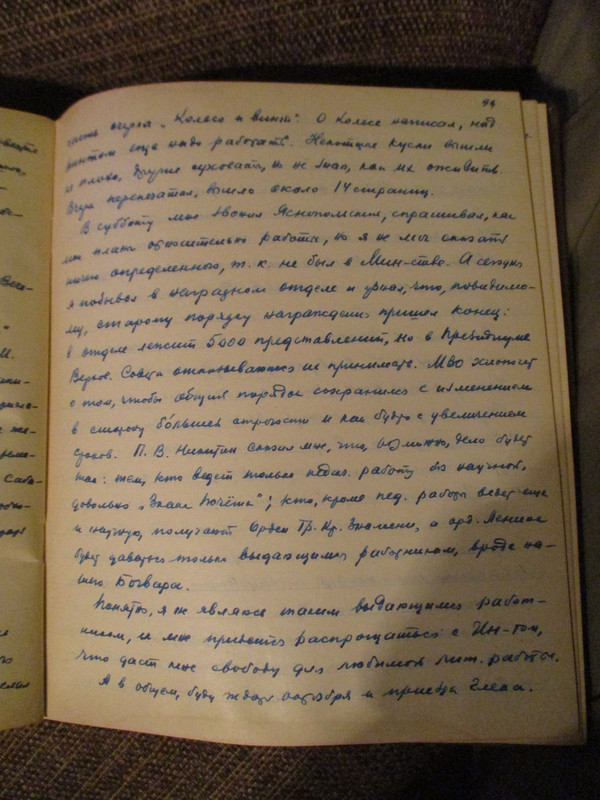 94
часть очерка „Колесо и винт". О колесе написал, над
винтом еще надо работать. Некоторые куски вышли
не плохо, другие суховаты, но не знаю, как их оживить.
Вчера перепечатал, вышло около 14 страниц.
В субботу мне звонил Яснопольский, спрашивал, как
мои планы относительно работы, но я не мог сказать
ничего определенного, т. к. не был в Мин-стве. А сегодня
я побывал в наградном отделе и узнал, что, повидимо-
му, старому порядку награждения пришел конец:
в отделе лежит 5000 представлений, но в Президиуме
Верхов. Совета отказываются их принимать. МВО хлопочет
о том, чтобы общий порядок сохранился с изменением
в сторону бо́льшей строгости и как будто с увеличением
сроков. П. В. Никитин сказал мне, что, возможно, дело будет
так: тем, кто ведет только педаг. работу без научной,
довольно „Знака Почёта"; кто, кроме пед. работы ведет еще
и научную, получают Орден Тр. Кр. Знамени, а орд. Ленина
будут давать только выдающимся работникам, вроде на-
шего Бочвара.
Понятно, я не являюсь таким выдающимся работ-
ником, и мне придется распрощаться с Ин-том,
что даст мне свободу для любимой лит. работы.
А в общем, буду ждать октября и приезда Глеба.